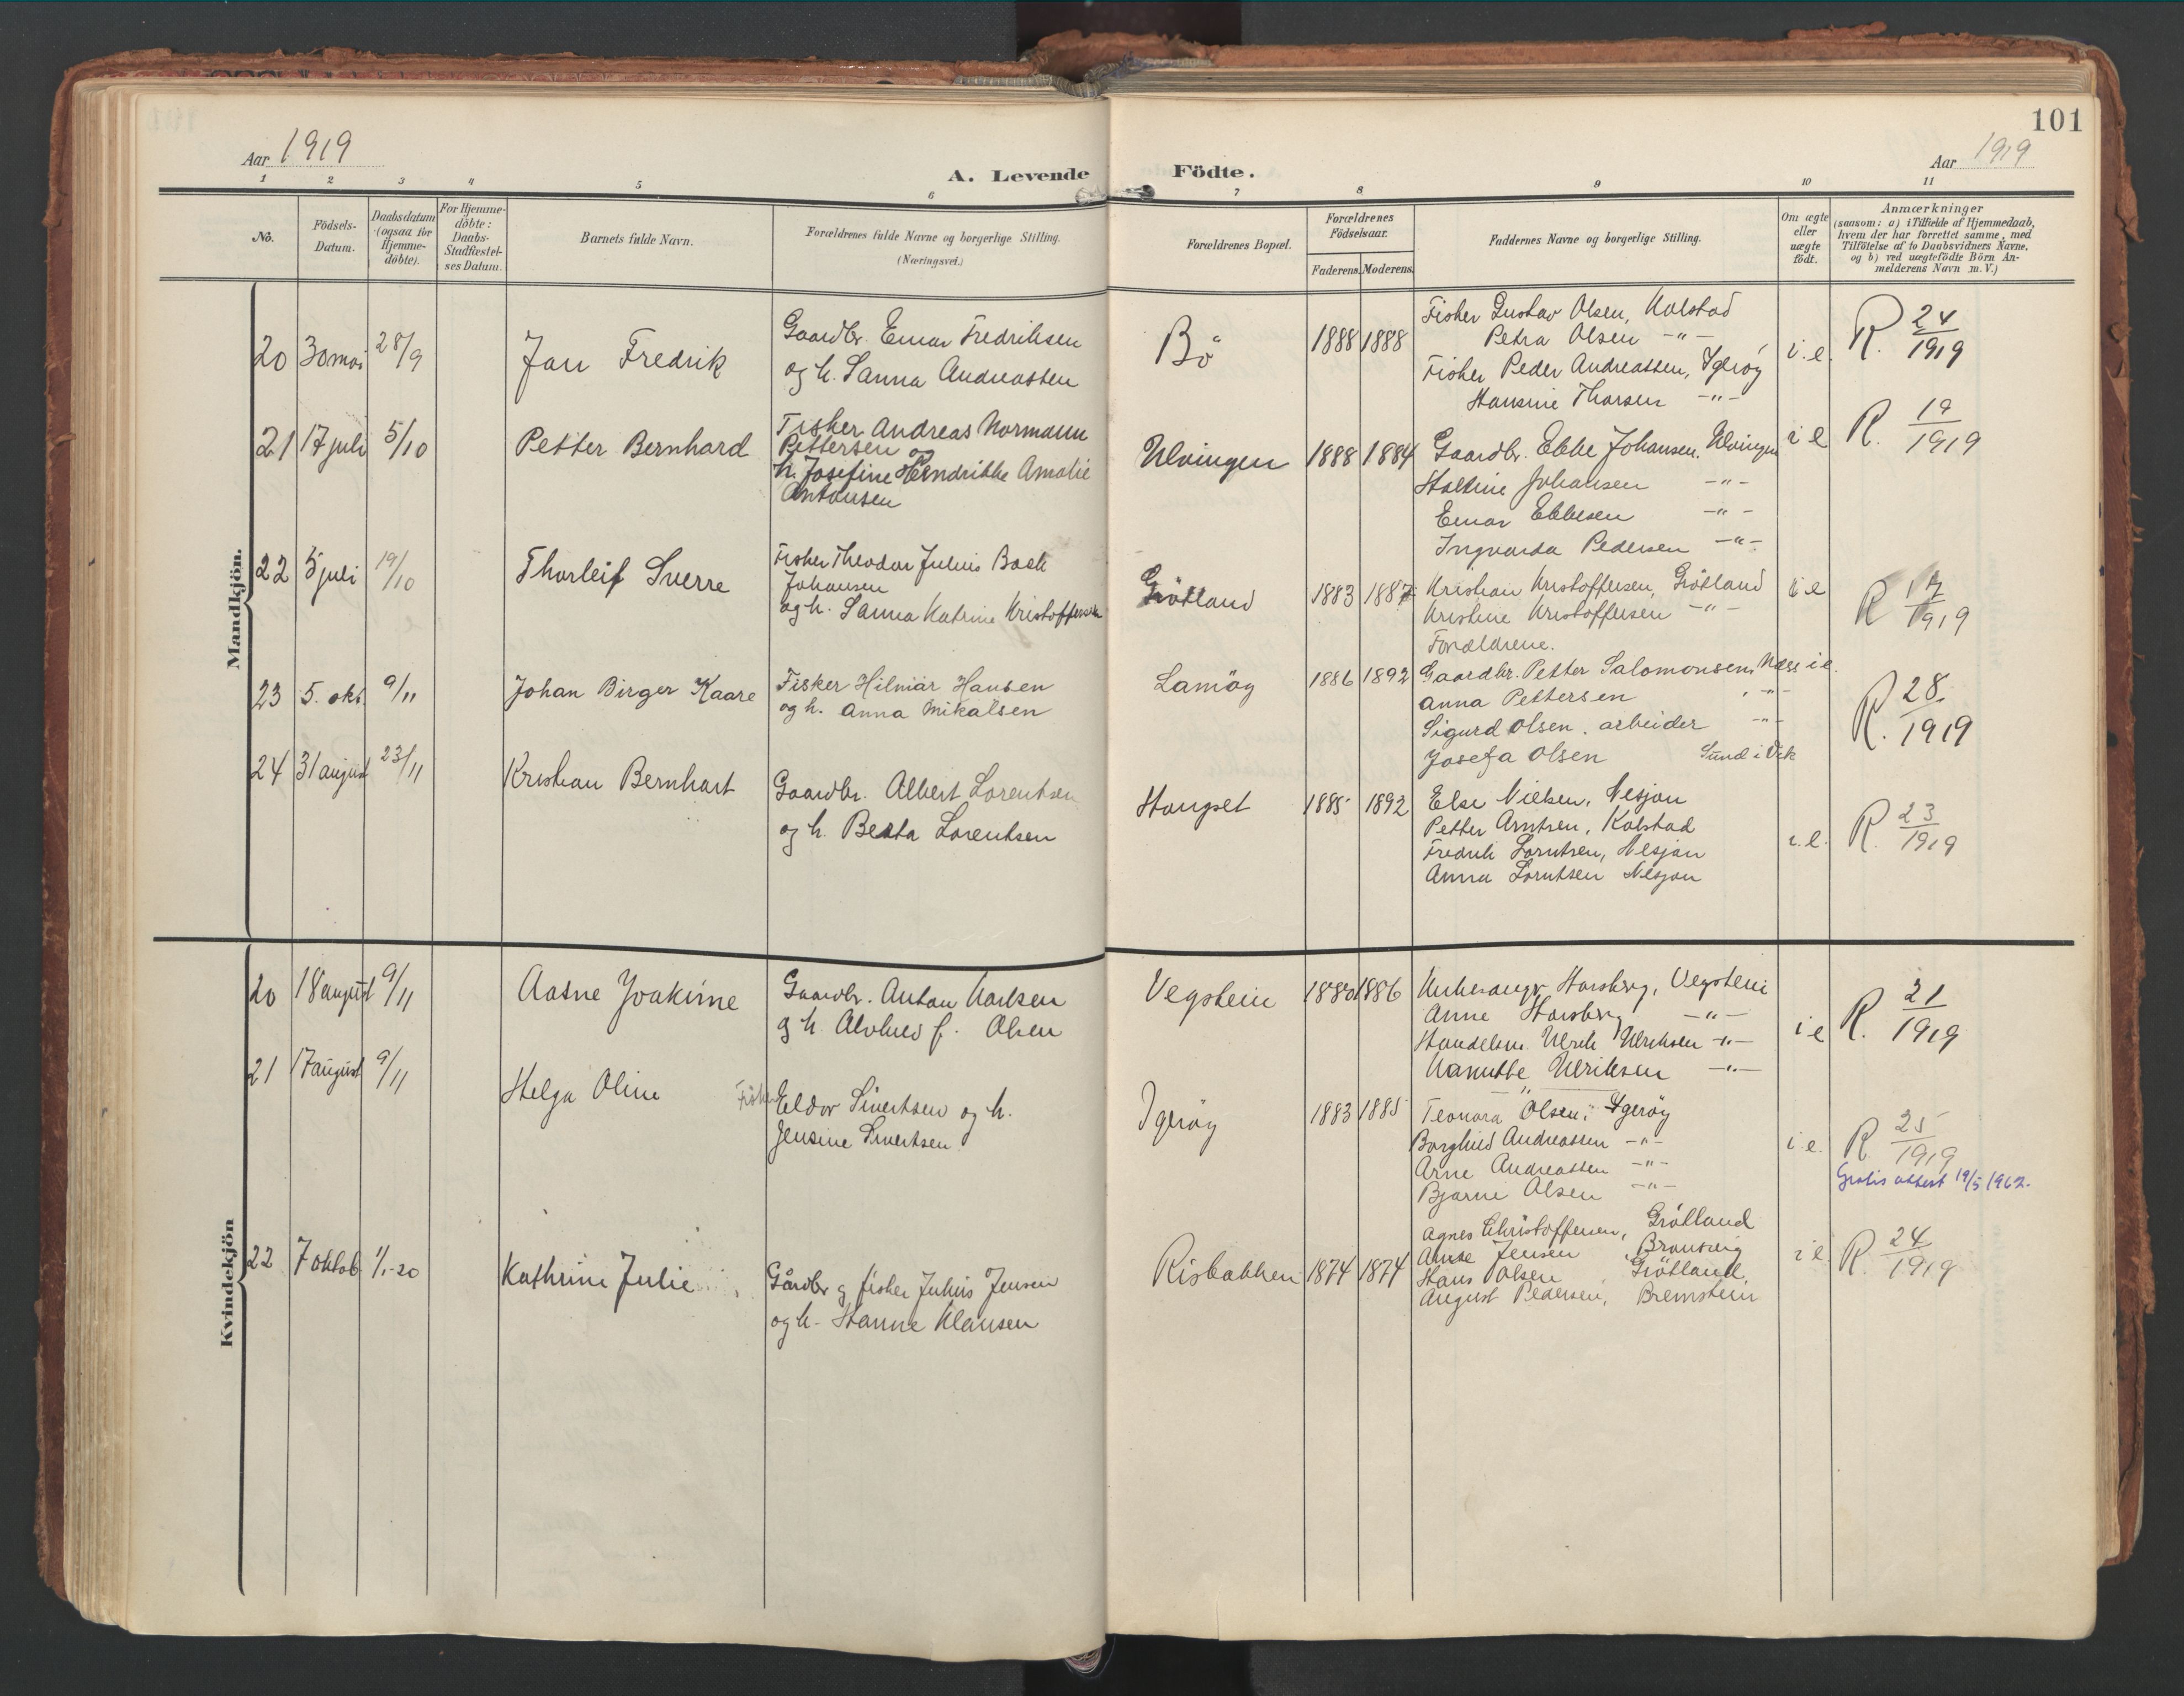 101
Aar 1919
A. Levende Födte.
Aar 1919
1 2 3 4 5 6 7 8 9 10 11
No.
Födsels-
Datum.
Daabsdatum
(ogsaa for
Hjemme-
döbte).
For Hjemme-
döbte:
Daabs-
Stadfæstel-
ses Datum.
Barnets fulde Navn.
Forældrenes fulde Navne og borgerlige Stilling.
(Næringsvei.)
Forældrenes Bopæl.
Forældrenes
Födselsaar.
Faderens. Moderens.
Faddernes Navne og borgerlige Stilling.
Om ægte
eller
uægte
födt.
Anmærkninger
(saasom: a) i Tilfælde af Hjemmedaab,
hvem der har forrettet samme, med
Tilföielse af to Daabsvidners Navne,
og b) ved uægtefödte Börn An-
melderens Navn m. V.)
Mandkjön.
20 30 mai 28/9
Jan Fredrik
Gaardbr. Einar Fredriksen
og h. Sanna Andreassen
Bö
1888 1888
Fisker Gustav Olsen, Kolstad
Petra Olsen -"-
Fisker Peder Andreassen, Igeröy
Hansine Thorsen -"-
i.e.
R. 24/1919
21 17 juli 5/10
Petter Bernhard
Fisker Andreas Normann
Pettersen og
h. Josefine Hendrikke Amalie
Antonsen
Ulvingen
1888 1884
Gaardbr. Ebbe Johansen, Ulvingen
Johansen -"-
Einar Ebbesen -"-
Ingvarda Pedersen -"-
i e
R. 19/1919
22 5 juli 19/10
Thorleif Sverre
Fisker Theodor Julius Bach
Johansen
og h. Sanna Katrine Kristoffersen
Grötland
1883 1887
Kristian Kristoffersen, Grötland
Kristine Kristoffersen -"-
Forældrene.
i e
R 17/1919
23 5. okt. 9/11
Johan Birger Kaare
Fisker Hilmar Hansen
og h. Anna Mikalsen
Lamöy
1886 1892
Gaardbr. Petter Salomonsen, Næss
Anna Pettersen -"-
Sigurd Olsen, arbeider -"-
Josefa Olsen Sund i Vik
i e.
R. 28/1919
24 31 august 23/11
Kristian Bernhart
Gaardbr. Albert Lorentsen
og h. Berta Lorentsen
Hongset
1885 1892
Else Nielsen, Nesjan
Petter Arntsen, Kolstad
Fredrik Lorntsen, Nesjan
Anna Lorntsen Nesjan
i.e.
R. 23/1919
Kvindekjön
20 18 august 9/11
Aasne Joakime
Gaardbr. Anton Karlsen
og h. Alvhild f. Olsen
Vegstein
1880 1886
Horsberg, Vegstein
Anne Horsberg -"-
Handelsm. Ulrik Ulriksen -"-
Ulriksen -"-
i e
R. 21/1919
21 17 august 9/11
Helga Oline
Fisker Eldor Sivertsen og h.
Jensine Sivertsen
Igeröy
1883 1885
Leonora Olsen, Igeröy
Borghild Andreassen -"-
Arne Andreassen -"-
Bjarne Olsen -"-
i e.
R. 25/1919
Gratis attest 19/5 1962.
22 7 oktob 1/1-20
Kathrine Julie
Gårdbr og fisker Julius Jensen
og h. Hanne Klausen
Risbakken
1874 1874
Agnes Christoffersen, Grötland
Jensen
Hans Olsen, Grötland,
August Pedersen, Bremstein
i e
R. 24/1919